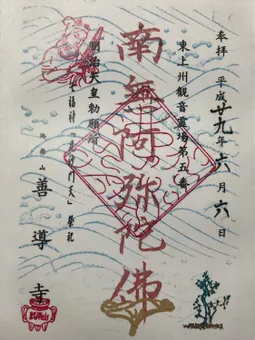 奉拝 平成廿九年六月六日
東上州観音霊場第五番
南無阿弥陀佛
明治天皇勅願所
七福神 毘沙門天 祭祀
善導寺